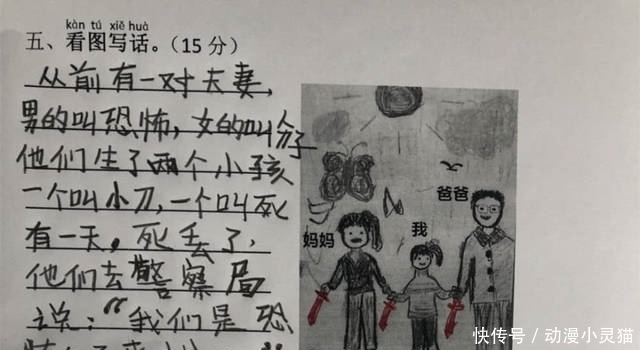 kàn tú xiě huà
五、看图写话。(15分)
从前有一对夫妻,
男的叫恐怖,女的叫分子
他们生了两个小孩
一个叫小刀,一个叫死
有一天,死丢了,
他们去警察局
说:“我们是恐
爸爸
我
妈妈
快传号/动漫小灵猫